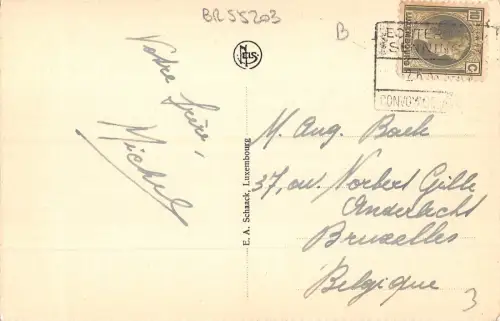 BR55203
B
NELS
LUXEMBOURG
Votre frère,
Michel
E. A. Schaack, Luxembourg
M. Aug. Back
37, av. Norbert Gille
Anderlecht
Bruxelles
Belgique
3